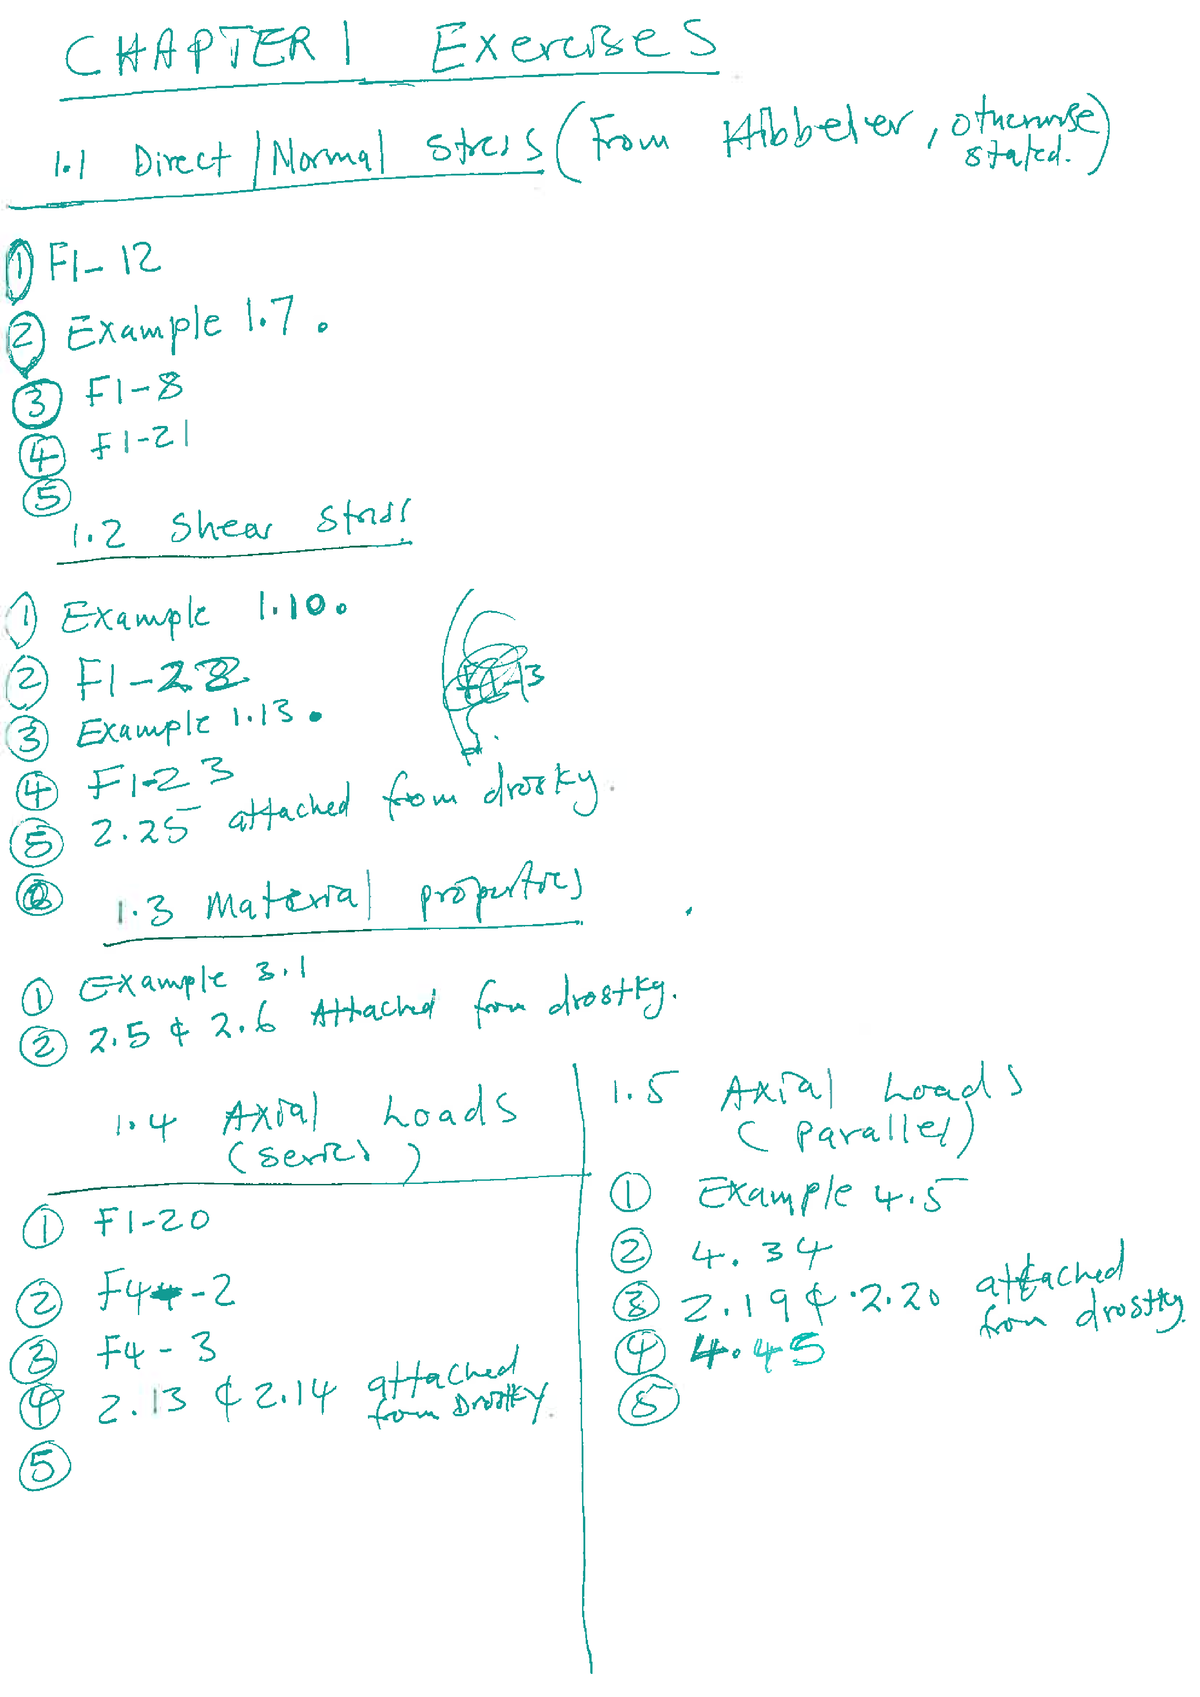 CHAPTER 1 Exercises
1.1 Direct/Normal stress (From Hibbeler, otherwise stated.)
① F1-12
② Example 1.7.
③ F1-8
④ F1-21
⑤
1.2 Shear stress
① Example 1.10.
② F1-22
③ Example 1.13.
④ F1-23
⑤ 2.25 attached from drostky.
1.3 Material properties
① Example 3.1
② 2.5 & 2.6 Attached from drostky.
1.4 Axial Loads
(series)
① F1-20
② F4-2
③ F4-3
④ 2.13 & 2.14 attached from Drostky.
⑤
1.5 Axial Loads
(parallel)
① Example 4.5
② 4.34
③ 2.19 & 2.20 attached from drostky.
④ 4.45
⑤